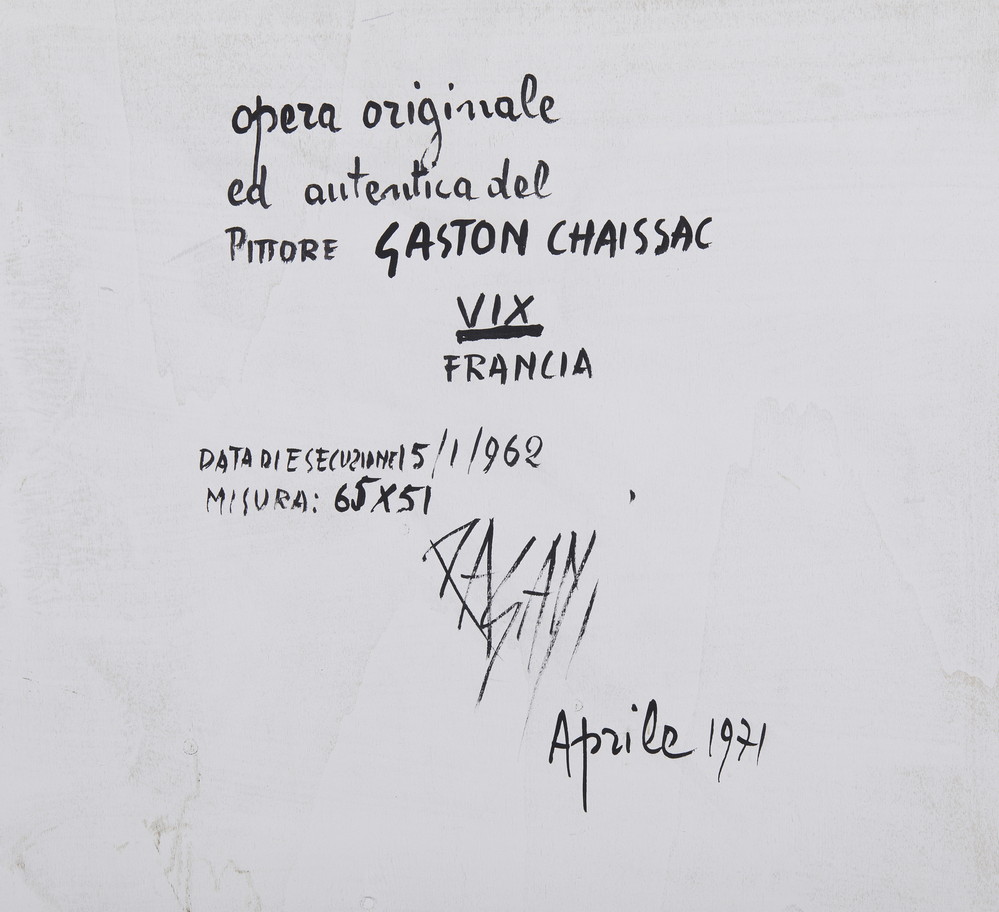 opera originale
ed autentica del
PITTORE GASTON CHAISSAC
VIX
FRANCIA
DATA DI ESECUZIONE 15/1/962
MISURA: 65X51
PAGANI
Aprile 1971